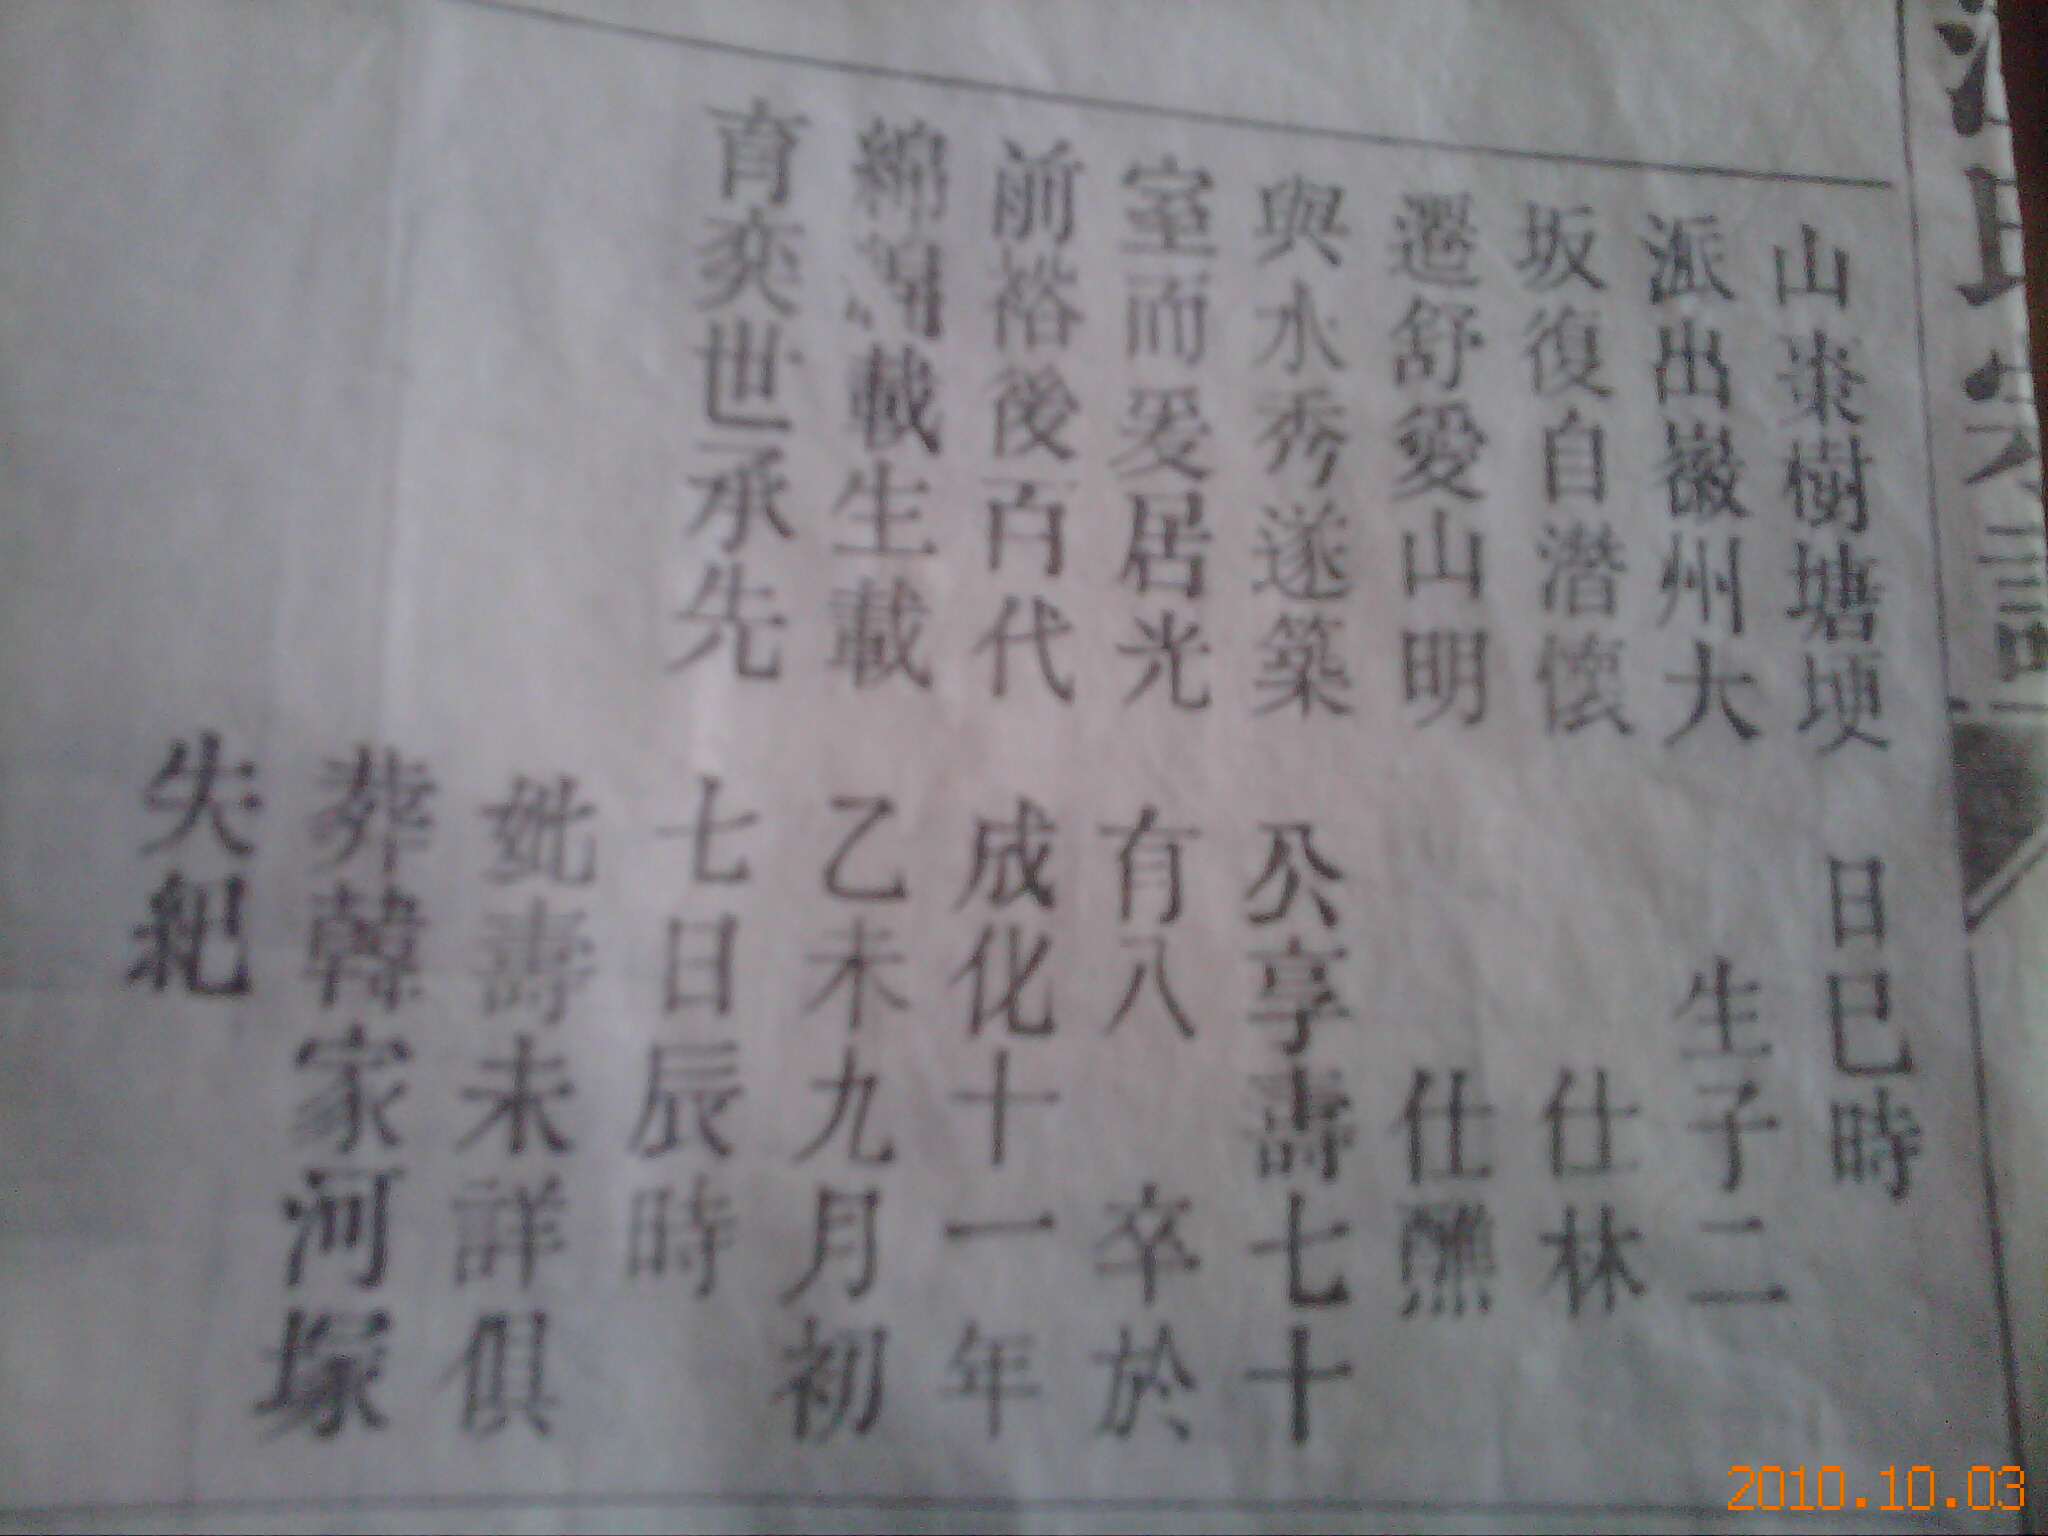 山棗樹塘埂
派出徽州大
坂復自潛懷
遷舒愛山明
與水秀遂築
室而爰居光
前裕後百代
綿綿載生載
育奕世承先
日巳時
生子二
仕林
仕
公享壽七十
有八 卒於
成化十一年
乙未九月初
七日辰時
妣壽未詳俱
葬韓家河塚
失紀
氏宗譜
2010.10.03